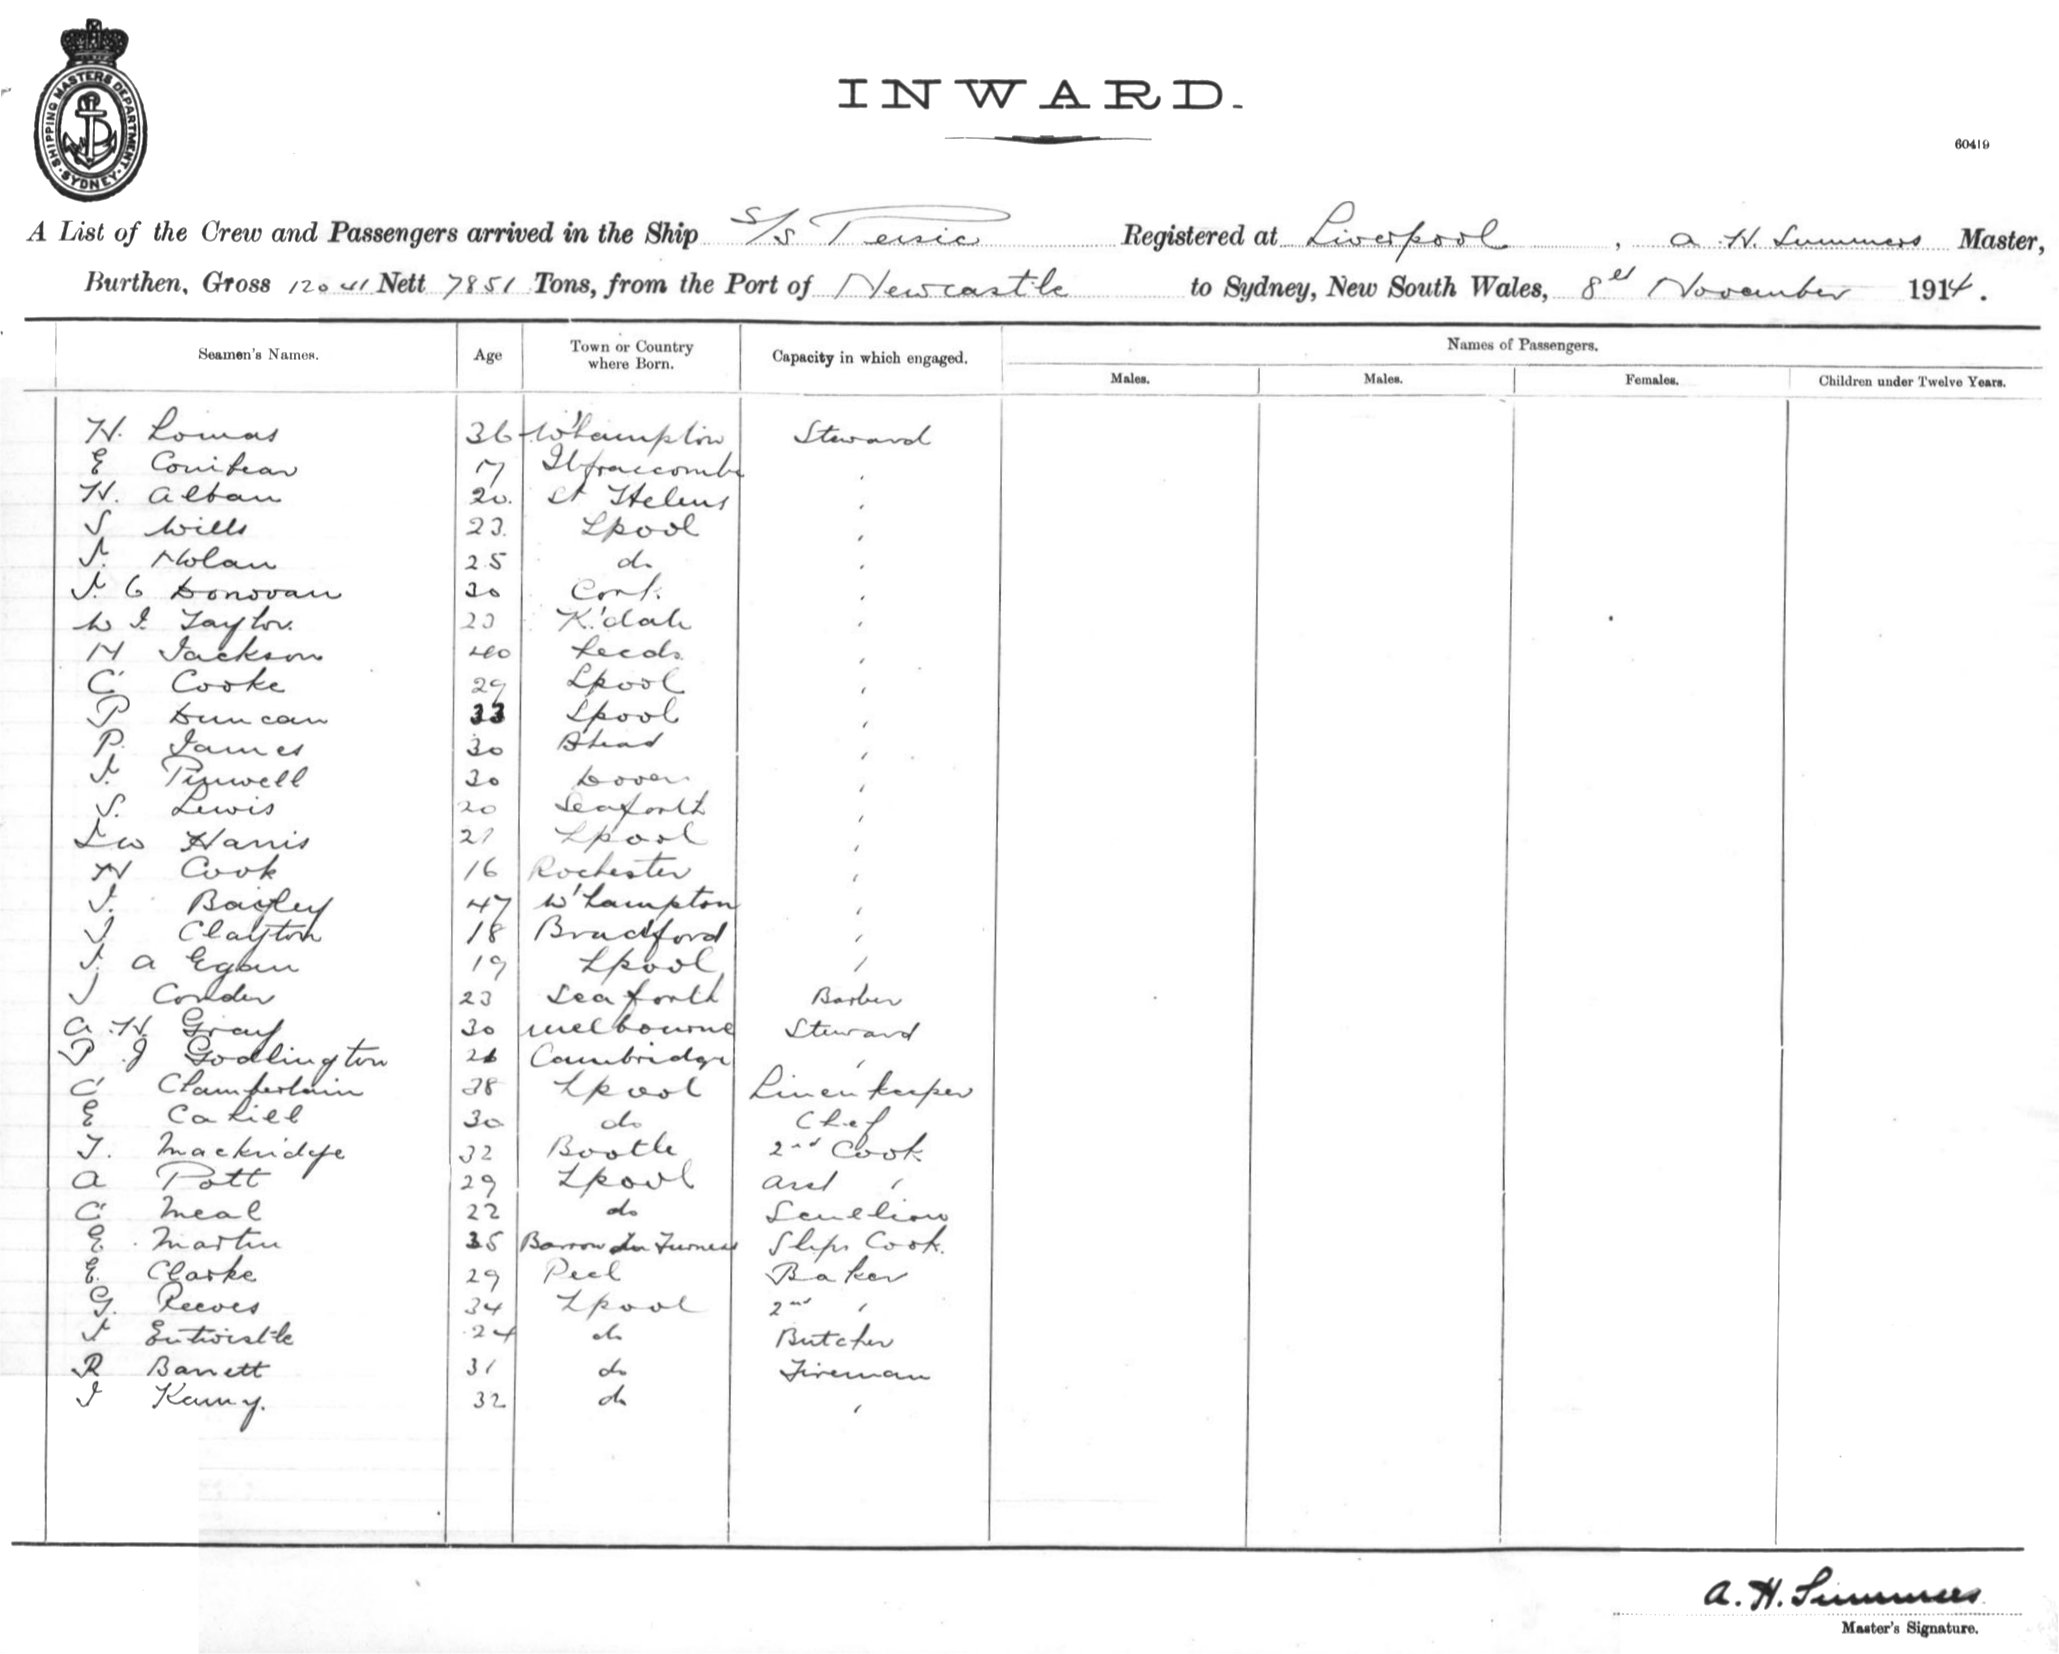 SHIPPING MASTERS DEPARTMENT. SYDNEY.
INWARD.
60419
A List of the Crew and Passengers arrived in the Ship S/S Persic Registered at Liverpool, A. H. Summers Master,
Burthen, Gross 12041 Nett 7851 Tons, from the Port of Newcastle to Sydney, New South Wales, 8th November 1914.
Seamen's Names. Age Town or Country where Born. Capacity in which engaged. Names of Passengers.
Males. Males. Females. Children under Twelve Years.
H. Lomas 36 W'hampton Steward
E Conibear 17 Ilfraccombe "
H. Alban 20. St Helens "
S Wills 23. Lpool "
J. Nolan 25 do "
J. C Donovan 30 Cork. "
W J. Taylor. 23 K'dale "
H Jackson 40 Leeds. "
C Cooke 29 Lpool "
P Duncan 33 Lpool "
P. James 30 Bhead "
J. Pinwell 30 Dover "
S. Lewis 20 Seaforth "
L W Harris 21 Lpool "
H Cook 16 Rochester "
J. Bayley 47 W'hampton "
J Clayton 18 Bradford "
J. A Egan 19 Lpool "
J Conder 23 Seaforth Barber
A. H. Gray 30 Melbourne Steward
P J Godlington 26 Cambridge "
C Chamberlain 38 Lpool Linen keeper
E Cahill 30 do Chef
T. Mackridge 32 Bootle 2nd Cook.
A Pott 29 Lpool Asst "
C Meal 22 do Scullion
E. Martin 35 Barrow In Furness Ships Cook.
E. Clarke 29 Peel Baker
G. Reeves 34 Lpool 2nd "
J Entwistle 24 do Butcher
R Barrett 31 do Fireman
J 32 do "
A. H. Summers
Master's Signature.